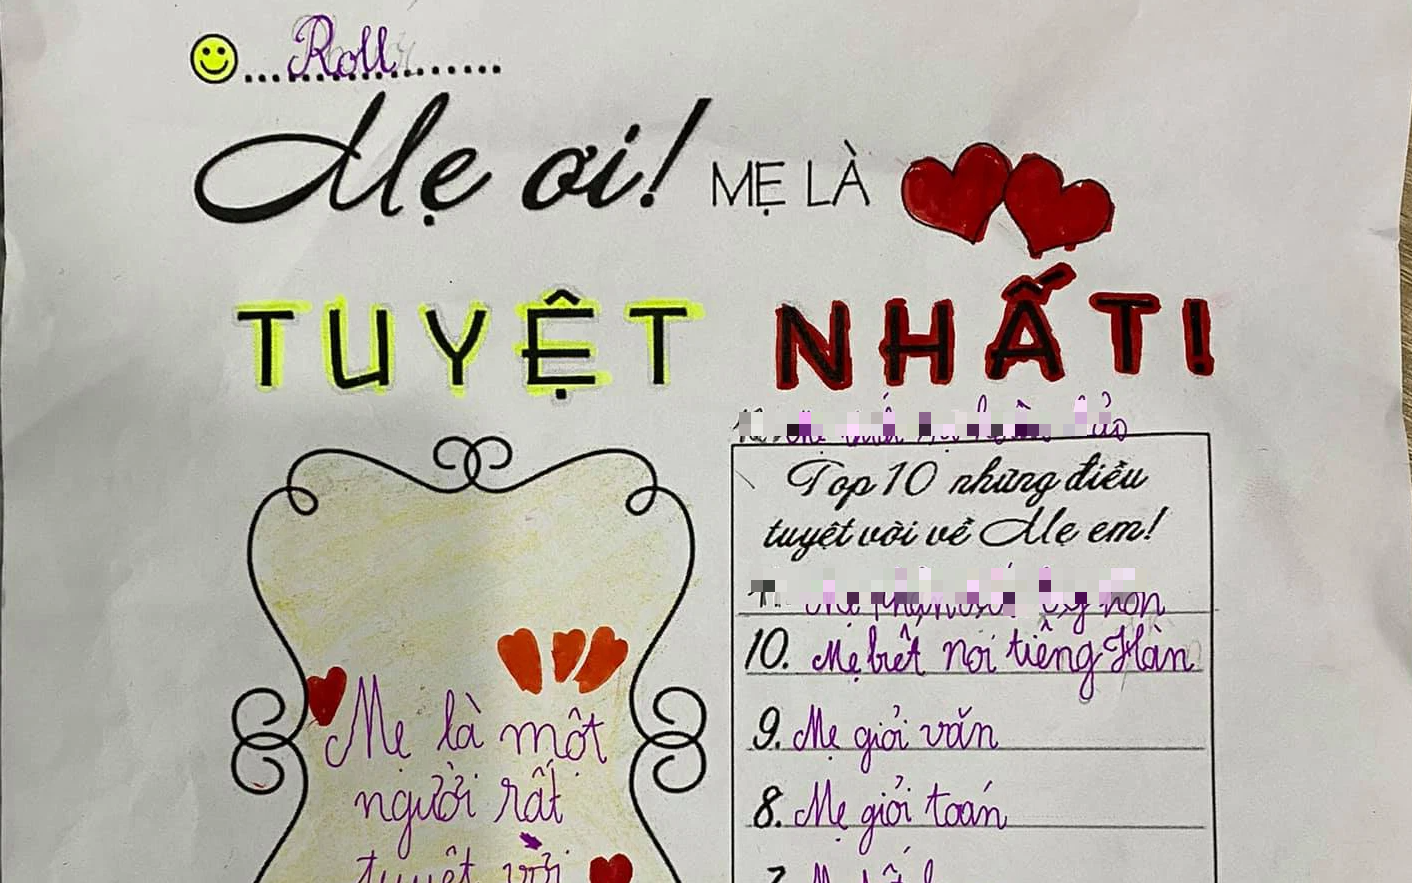 Roll
Mẹ ơi! MẸ LÀ
TUYỆT NHẤT!
Top 10 những điều
tuyệt vời về Mẹ em!
10. Mẹ biết nói tiếng Hàn
9. Mẹ giỏi văn
8. Mẹ giỏi toán
7.
Mẹ là một
người rất
tuyệt vời